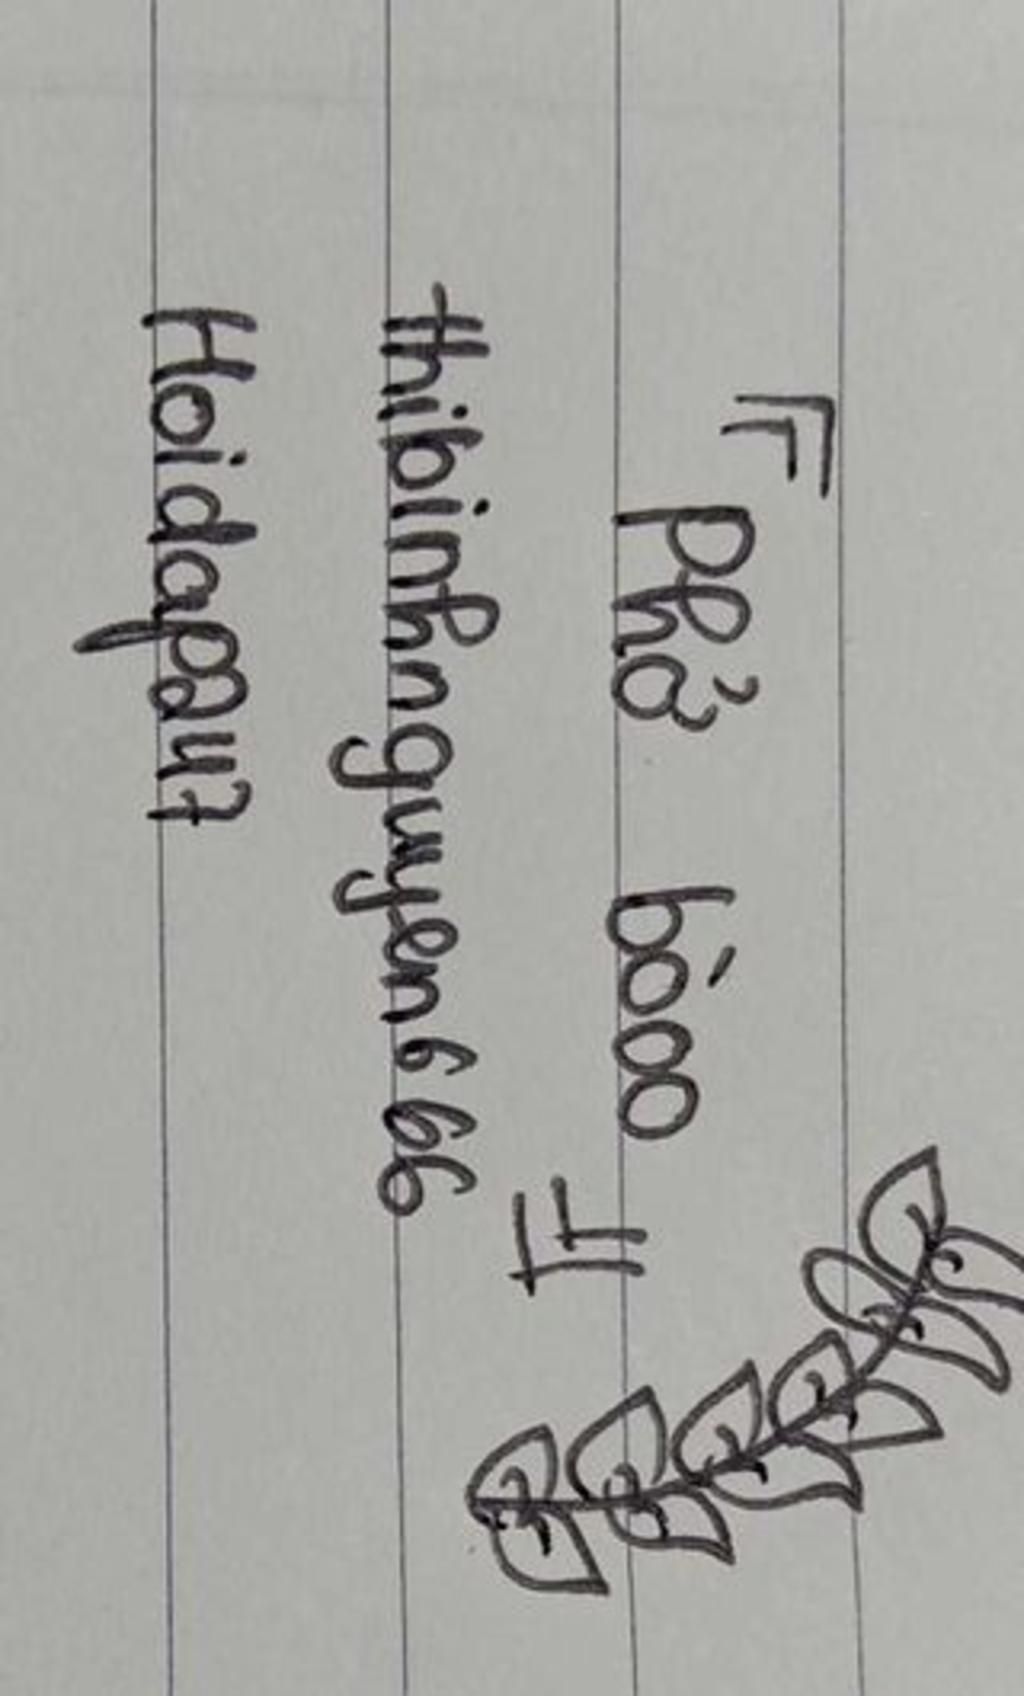 『Phở bòoo』
thibinhnguyen666
Hoidap247